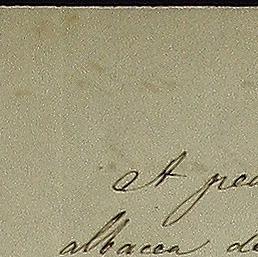 A pea
albacea de